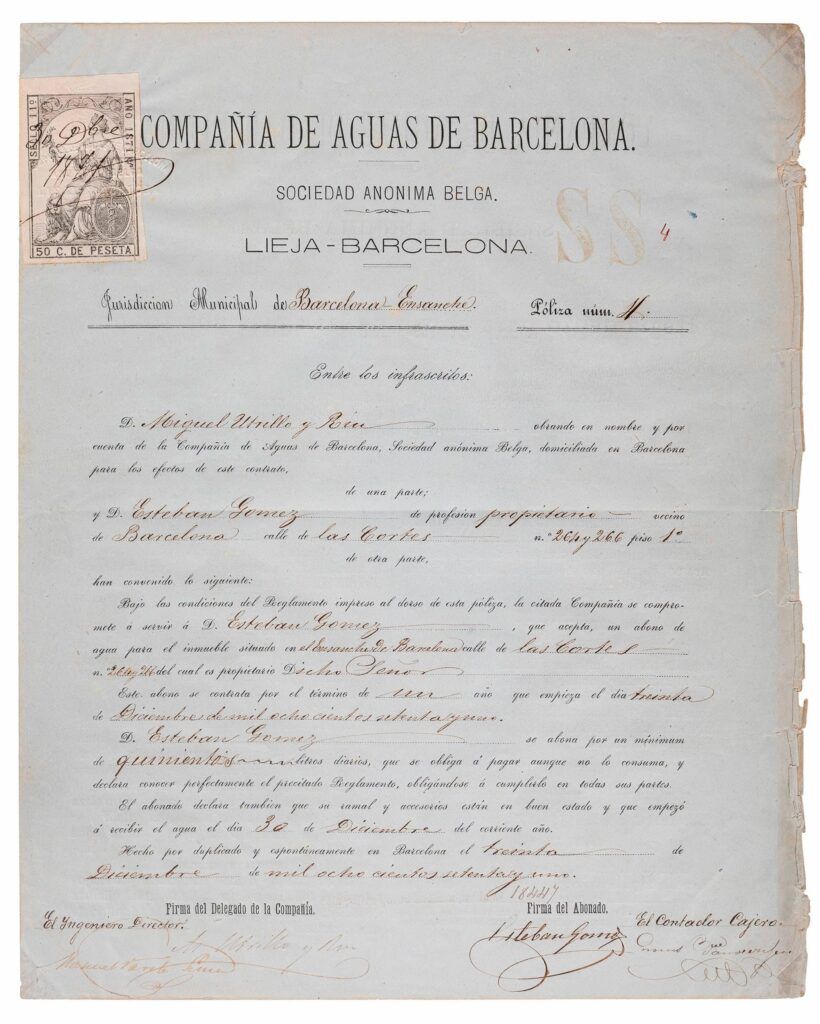 SELLO 11º
AÑO 1871
30 Dbre
1871
50 C. DE PESETA
COMPAÑÍA DE AGUAS DE BARCELONA.
SOCIEDAD ANONIMA BELGA.
LIEJA-BARCELONA.
SS
4
Jurisdiccion Municipal de Barcelona Ensanche.
Póliza núm. 4.
Entre los infrascritos:
D. Miguel Utrillo y Riu obrando en nombre y por
cuenta de la Compañía de Aguas de Barcelona, Sociedad anónima Belga, domiciliada en Barcelona
para los efectos de este contrato,
de una parte;
y D. Esteban Gomez de profesion propietario vecino
de Barcelona calle de las Cortes n.º 264 y 266 piso 1º
de otra parte,
han convenido lo siguiente:
Bajo las condiciones del Reglamento impreso al dorso de esta póliza, la citada Compañía se compro-
mete á servir á D. Esteban Gomez, que acepta, un abono de
agua para el inmueble situado en el Ensanche de Barcelona calle de las Cortes
n.º 264 y 266 del cual es propietario Dicho Señor
Este abono se contrata por el término de un año que empieza el dia treinta
de Diciembre de mil ocho cientos setenta y uno.
D. Esteban Gomez se abona por un mínimum
de quinientos litros diarios, que se obliga á pagar aunque no lo consuma, y
declara conocer perfectamente el precitado Reglamento, obligándose á cumplirlo en todas sus partes.
El abonado declara tambien que su ramal y accesorios están en buen estado y que empezó
á recibir el agua el dia 30 de Diciembre del corriente año.
Hecho por duplicado y espontáneamente en Barcelona el treinta de
Diciembre de mil ocho cientos setenta y uno.
18447
Firma del Delegado de la Compañía.
Firma del Abonado.
El Ingeniero Director.
El Contador Cajero.
M. Utrillo y Riu
Esteban Gomez